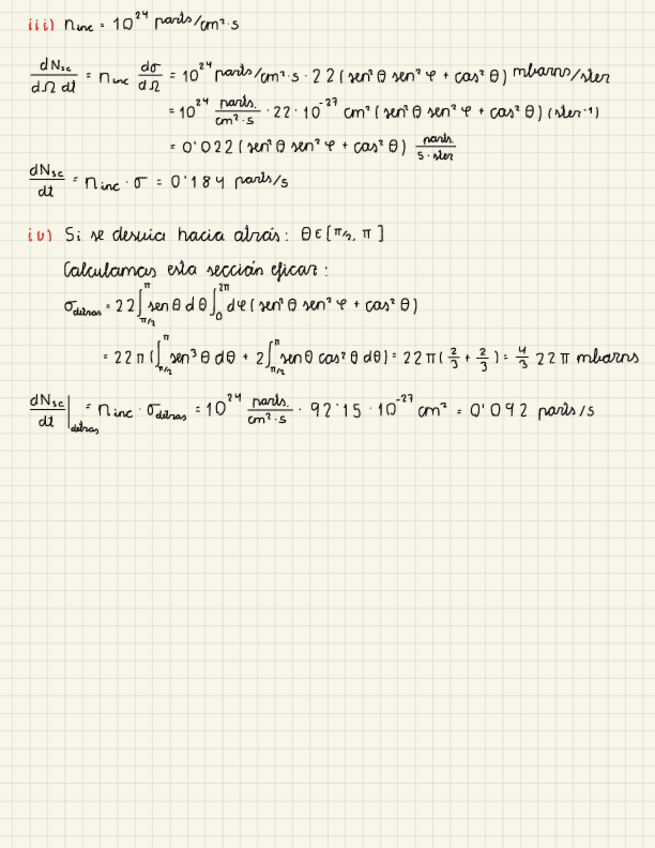 iii) n_inc = 10^24 parts/cm²·s
dN_sc/dΩ dt = n_inc dσ/dΩ = 10^24 parts/cm²·s · 22 (sen²θ sen²φ + cos²θ) mbarns/ster
= 10^24 parts./cm²·s · 22 · 10^-27 cm² (sen²θ sen²φ + cos²θ) (ster^-1)
= 0'022 (sen²θ sen²φ + cos²θ) parts./s·ster
dN_sc/dt = n_inc · σ = 0'184 parts/s
iv) Si se desvía hacia atrás: θ ∈ [π/2, π]
Calculamos esta sección eficaz:
σ_detras = 22 ∫_π/2^π sen θ dθ ∫_0^2π dφ (sen²θ sen²φ + cos²θ)
= 22 π (∫_π/2^π sen³θ dθ + 2 ∫_π/2^π sen θ cos²θ dθ) = 22 π (2/3 + 2/3) = 4/3 22 π mbarns
dN_sc/dt |_detras = n_inc · σ_detras = 10^24 parts./cm²·s · 92'15 · 10^-27 cm² = 0'092 parts/s